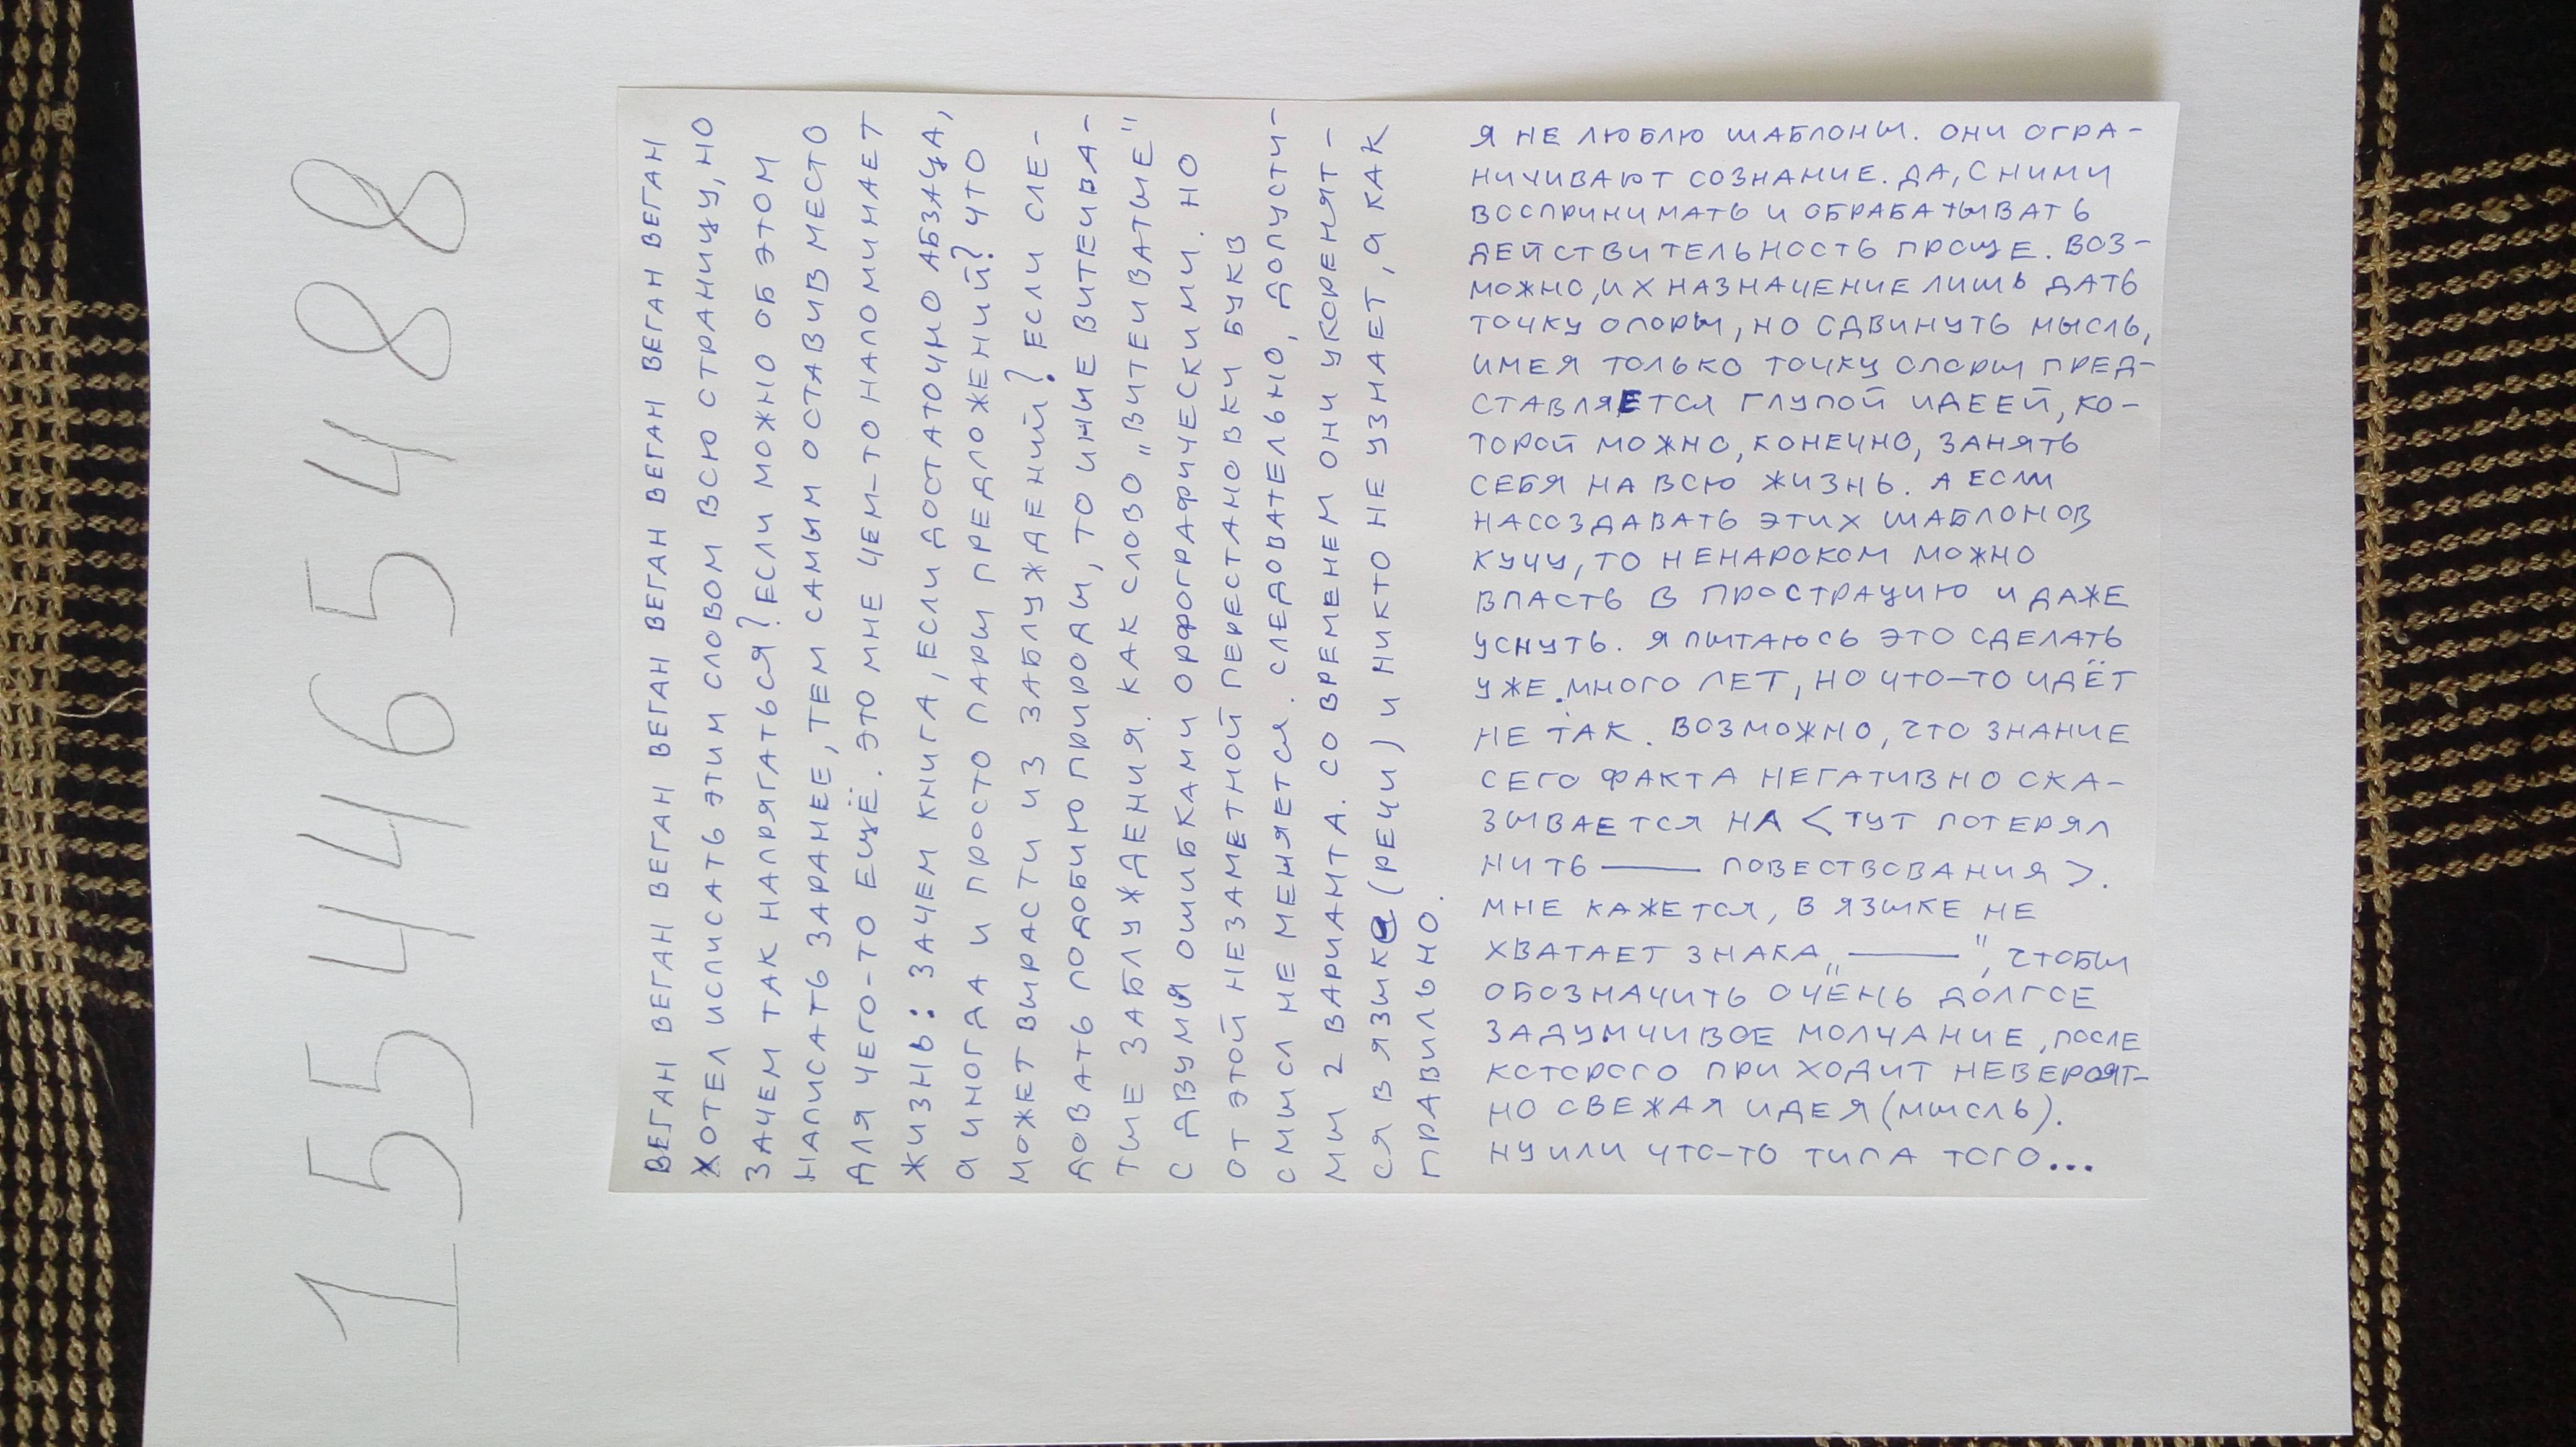 155446548 8
ВЕГАН ВЕГАН ВЕГАН ВЕГАН ВЕГАН ВЕГАН ВЕГАН ВЕГАН ВЕГАН
ХОТЕЛ ИСПИСАТЬ ЭТИМ СЛОВОМ ВСЮ СТРАНИЦУ, НО
ЗАЧЕМ ТАК НАПРЯГАТЬСЯ? ЕСЛИ МОЖНО ОБ ЭТОМ
НАПИСАТЬ ЗАРАНЕЕ, ТЕМ САМЫМ ОСТАВИВ МЕСТО
ДЛЯ ЧЕГО-ТО ЕЩЁ. ЭТО МНЕ ЧЕМ-ТО НАПОМИНАЕТ
ЖИЗНЬ: ЗАЧЕМ КНИГА, ЕСЛИ ДОСТАТОЧНО АБЗАЦА,
А ИНОГДА И ПРОСТО ПАРЫ ПРЕДЛОЖЕНИЙ? ЧТО
МОЖЕТ ВЫРАСТИ ИЗ ЗАБЛУЖДЕНИЙ? ЕСЛИ СЛЕ-
ДОВАТЬ ПОДОБИЮ ПРИРОДЫ, ТО ИНЫЕ ВИТЕИВА-
ТЫЕ ЗАБЛУЖДЕНИЯ. КАК СЛОВО „ВИТЕИВАТЫЕ"
С ДВУМЯ ОШИБКАМИ ОРФОГРАФИЧЕСКИМИ. НО
ОТ ЭТОЙ НЕЗАМЕТНОЙ ПЕРЕСТАНОВКИ БУКВ
СМЫСЛ НЕ МЕНЯЕТСЯ. СЛЕДОВАТЕЛЬНО, ДОПУСТИ-
МЫ 2 ВАРИАНТА. СО ВРЕМЕНЕМ ОНИ УКОРЕНЯТ-
СЯ В ЯЗЫКЕ (РЕЧИ) И НИКТО НЕ УЗНАЕТ, А КАК
ПРАВИЛЬНО.
Я НЕ ЛЮБЛЮ ШАБЛОНЫ. ОНИ ОГРА-
НИЧИВАЮТ СОЗНАНИЕ. ДА, С НИМИ
ВОСПРИНИМАТЬ И ОБРАБАТЫВАТЬ
ДЕЙСТВИТЕЛЬНОСТЬ ПРОЩЕ. ВОЗ-
МОЖНО, ИХ НАЗНАЧЕНИЕ ЛИШЬ ДАТЬ
ТОЧКУ ОПОРЫ, НО СДВИНУТЬ МЫСЛЬ,
ИМЕЯ ТОЛЬКО ТОЧКУ ОПОРЫ ПРЕД-
СТАВЛЯЕТСЯ ГЛУПОЙ ИДЕЕЙ, КО-
ТОРОЙ МОЖНО, КОНЕЧНО, ЗАНЯТЬ
СЕБЯ НА ВСЮ ЖИЗНЬ. А ЕСЛИ
НАСОЗДАВАТЬ ЭТИХ ШАБЛОНОВ
КУЧУ, ТО НЕНАРОКОМ МОЖНО
ВПАСТЬ В ПРОСТРАЦИЮ И ДАЖЕ
УСНУТЬ. Я ПЫТАЮСЬ ЭТО СДЕЛАТЬ
УЖЕ МНОГО ЛЕТ, НО ЧТО-ТО ИДЁТ
НЕ ТАК. ВОЗМОЖНО, ЧТО ЗНАНИЕ
СЕГО ФАКТА НЕГАТИВНО СКА-
ЗЫВАЕТСЯ НА <ТУТ ПОТЕРЯЛ
НИТЬ —— ПОВЕСТВОВАНИЯ>.
МНЕ КАЖЕТСЯ, В ЯЗЫКЕ НЕ
ХВАТАЕТ ЗНАКА „——", ЧТОБЫ
ОБОЗНАЧИТЬ ОЧЕНЬ ДОЛГОЕ
ЗАДУМЧИВОЕ МОЛЧАНИЕ, ПОСЛЕ
КОТОРОГО ПРИХОДИТ НЕВЕРОЯТ-
НО СВЕЖАЯ ИДЕЯ (МЫСЛЬ).
НУ ИЛИ ЧТО-ТО ТИПА ТОГО...